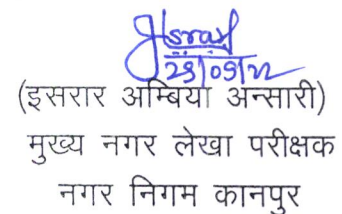 Israr
23/09/22
(इसरार अम्बिया अन्सारी)
मुख्य नगर लेखा परीक्षक
नगर निगम कानपुर